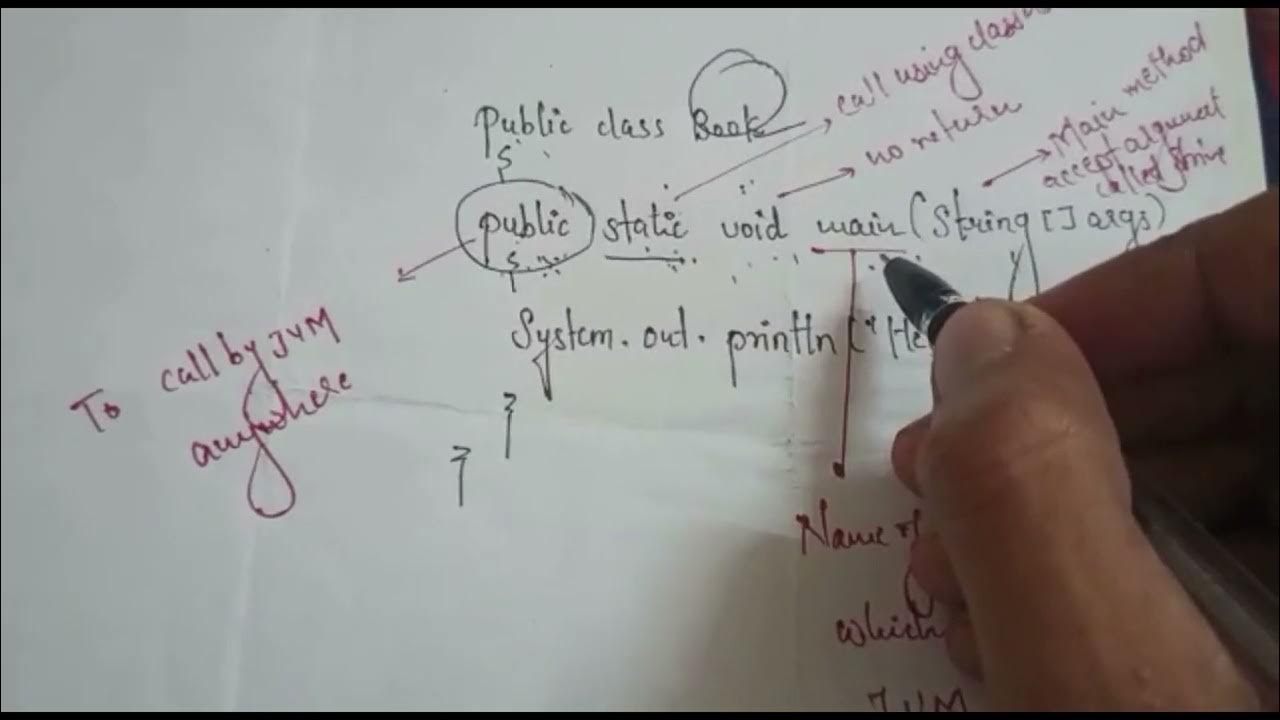 public class Book
{
public static void main (String [] args)
{
System.out.println ("He
}
}
call using class
no return
Main method
accept argument
called
To call by JVM
anywhere
Name of
which
JVM